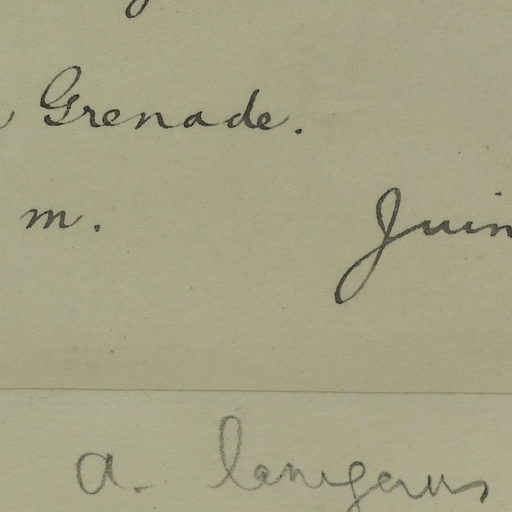 Grenade.
m. Juin
a. lanigerus